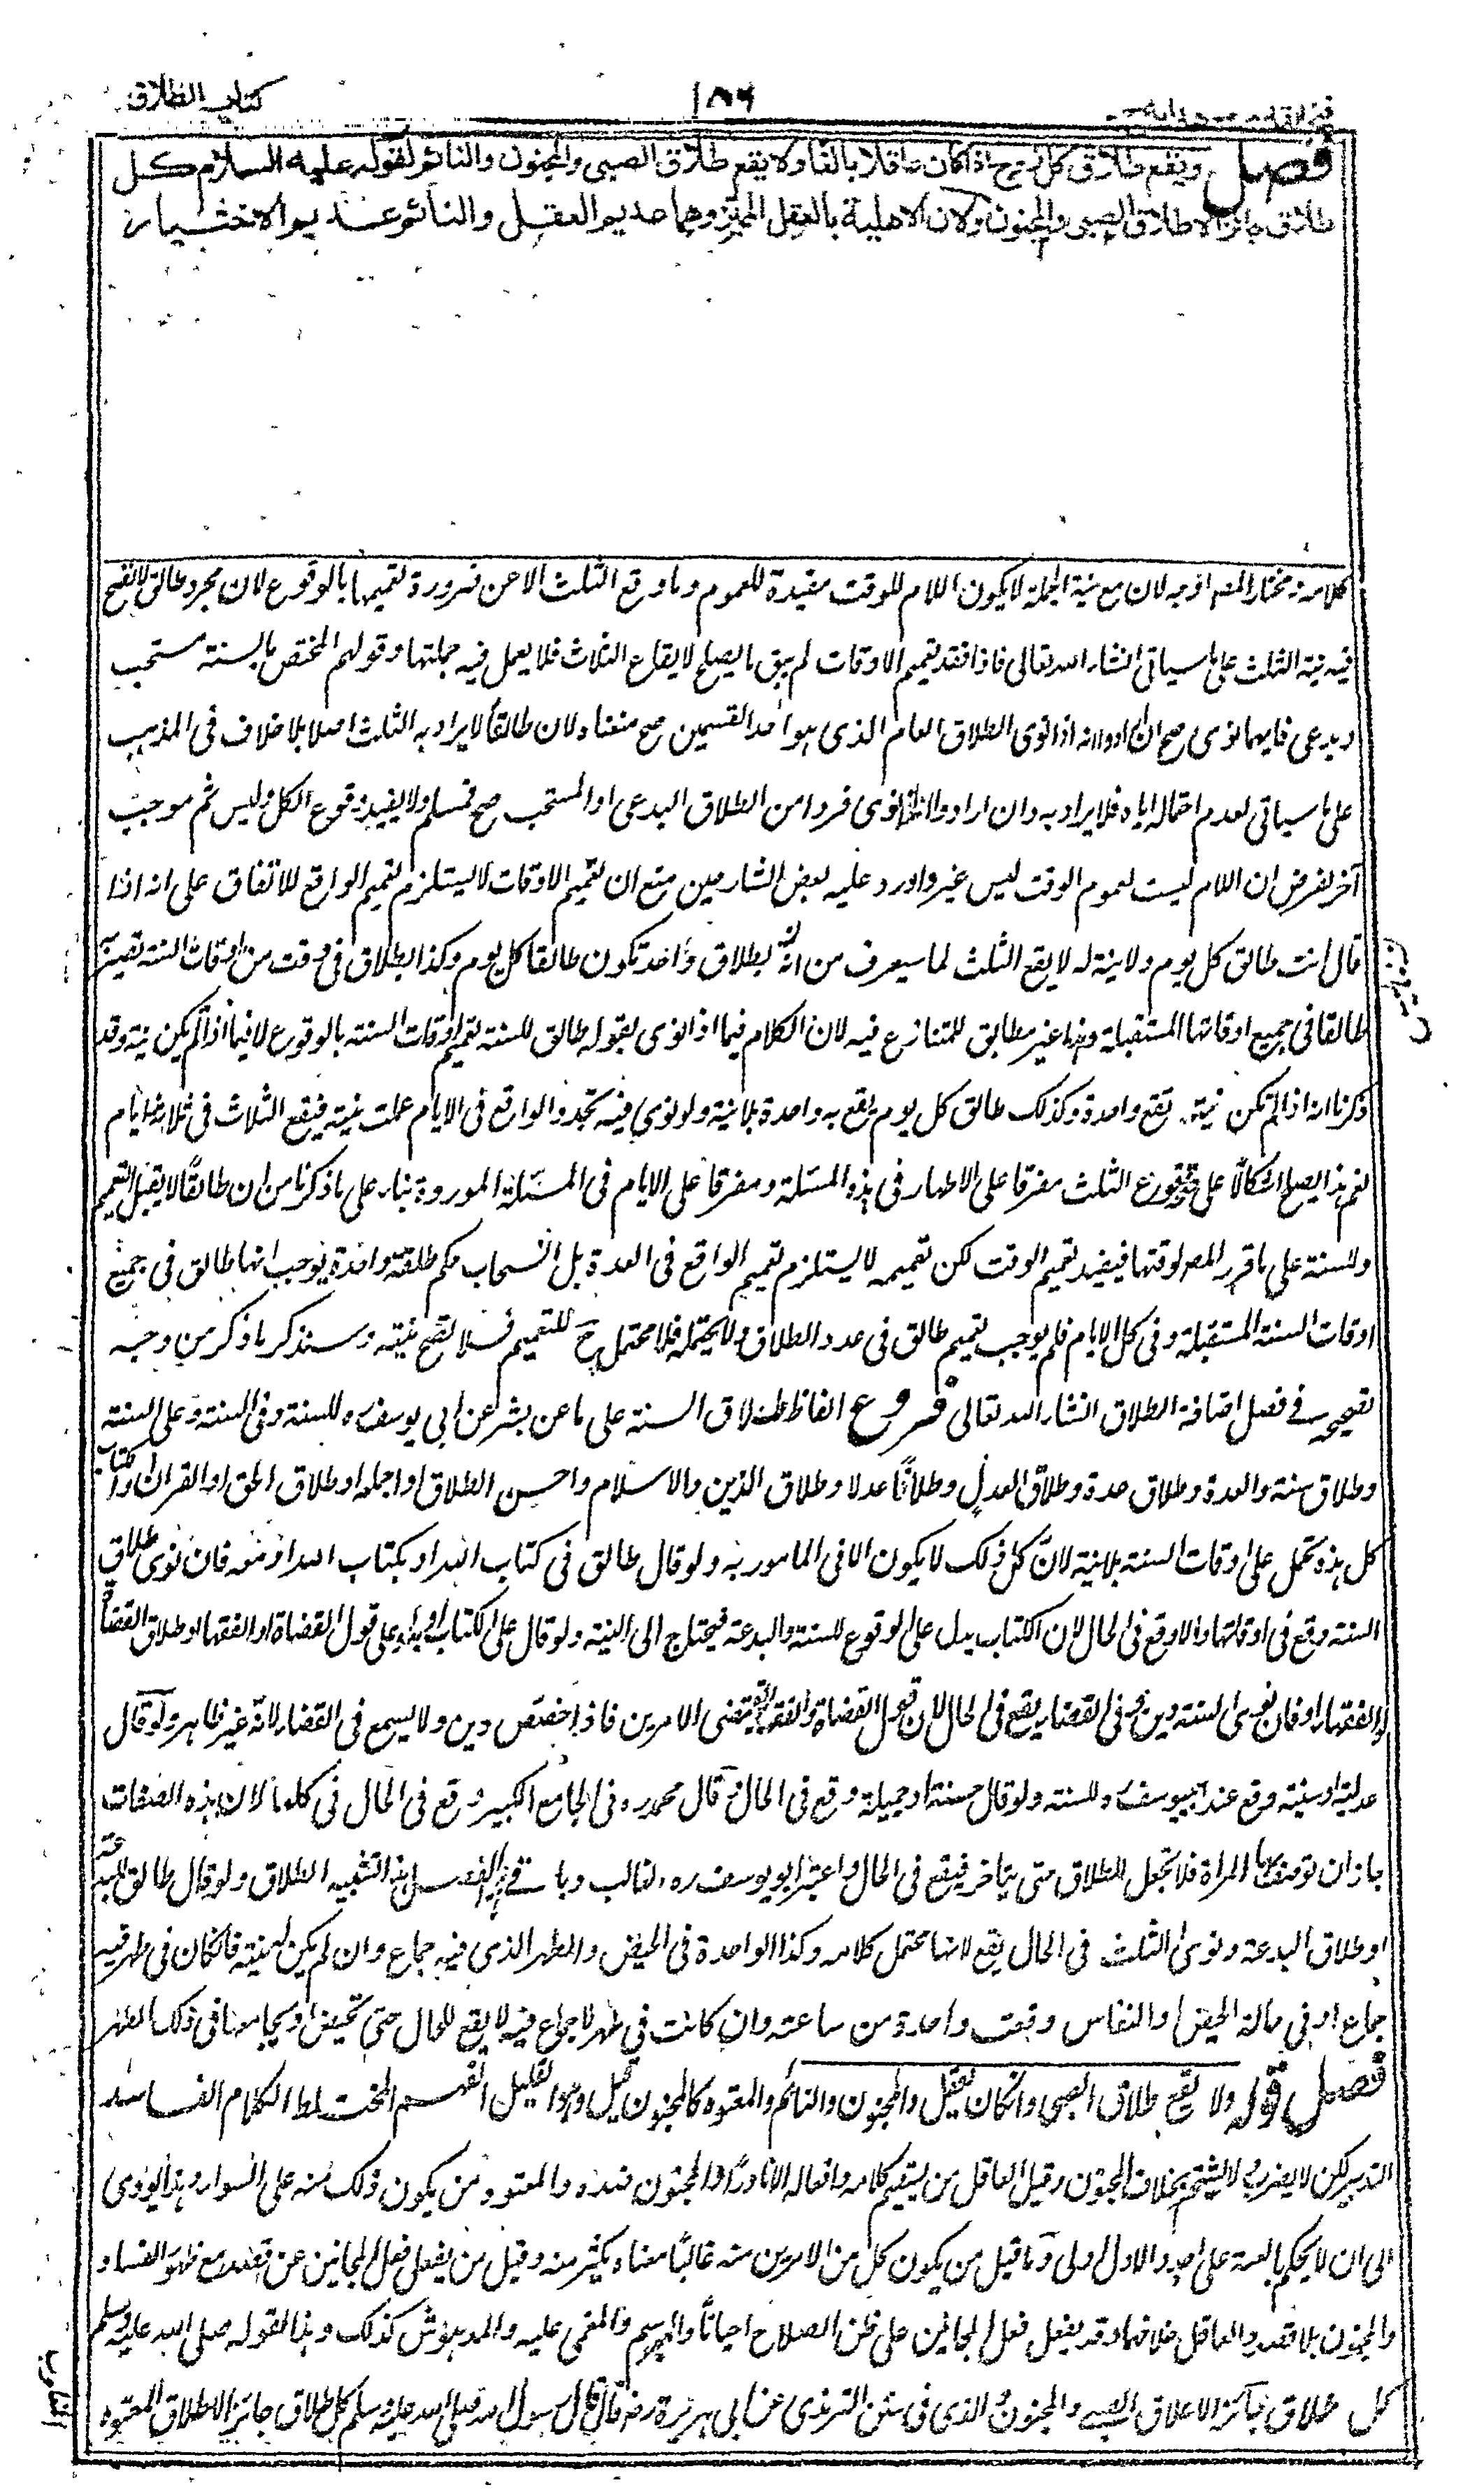 كتاب الطلاق
١٥٦
فصل ويقع طلاق كل زوج اذا كان عاقلا بالغا ولا يقع طلاق الصبي والمجنون والنائم لقوله عليه السلام كل
طلاق جائز الا طلاق الصبي والمجنون ولان الاهلية بالعقل المميز وهما عديم العقل والنائم عديم الاختيار
كلامه ومختار المصـ اوجه لان مع نية الجملة لا يكون اللام للوقت مفيدة للعموم وما وقع الثلث الا عن ضرورة تعميمها بالوقوع لان مجرد طالق لا تصح
فيه نية الثلث على ما سياتي انشاء الله تعالى فاذا فقد تعميم الاوقات لم يبق ما يصلح لايقاع الثلاث فلا يعمل فيه جملتها وقولهم المختص بالسنة مستحب
وبدعي فايهما نوى صح ان ارادوا انه اذا نوى الطلاق العام الذي هو احد القسمين صح منعناه لان طالقا لا يراد به الثلث اصلا بلا خلاف في المذهب
على ما سياتي لعدم احتماله اياه فلا يراد به وان ارادوا انه اذا نوى فردا من الطلاق البدعي او المستحب صح فمسلم ولا يفيد وقوع الكل وليس ثم موجب
آخر لفرض ان اللام ليست لعموم الوقت ليس غير واورد عليه بعض الشارحين منع ان تعميم الاوقات لا يستلزم تعميم الواقع للاتفاق على انه اذا
قال انت طالق كل يوم ولا نية له لا يقع الثلث لما سيعرف من انه بطلاق واحد تكون طالقا كل يوم وكذا بطلاق في وقت من اوقات السنة تصير
طالقا في جميع اوقاتها المستقبلة وهذا غير مطابق للمتنازع فيه لان الكلام فيما اذا نوى بقوله طالق للسنة تعميم اوقات السنة بالوقوع لا فيما اذا لم يكن نية وقد
ذكرنا انه اذا لم تكن نية يقع واحدة وكذلك طالق كل يوم يقع به واحدة بلا نية ولو نوى فيه تجدد الواقع في الايام عملت نية فيقع الثلاث في ثلاثة ايام
نعم هذا يصلح اشكالا على وقوع الثلث مفرقا على الاطهار في هذه المسئلة ومفرقا على الايام في المسئلة الموردة بناء على ما ذكرنا من ان طالقا لا يقبل التعميم
وللسنة على ما قرر المصـ لوقتها فيفيد تعميم الوقت لكن تعميمه لا يستلزم تعميم الواقع في العدة بل انسحاب حكم طلقة واحدة يوجب انها طالق في جميع
اوقات السنة المستقبلة وفي كل الايام فلم يوجب تعميم طالق في عدد الطلاق ولا يحتمله فلا محتمل ح للتعميم فلا تصح نيته وسنذكر ما ذكر من وجه
تصحيحه في فصل اضافة الطلاق انشاء الله تعالى فروع الفاظ طلاق السنة على ما عن بشر عن ابي يوسف ره للسنة وفي السنة وعلى السنة
وطلاق سنة والعدة وطلاق عدة وطلاق العدل وطلاقا عدلا وطلاق الدين والاسلام واحسن الطلاق او اجمله او طلاق الحق او القران او الكتاب
كل هذه تحمل على اوقات السنة بلا نية لان كل ذلك لا يكون الا في المامور به ولو قال طالق في كتاب الله او بكتاب الله او معه فان نوى طلاق
السنة وقع في اوقاتها والا وقع في الحال لان الكتاب يدل على الوقوع للسنة والبدعة فيحتاج الى النية ولو قال على الكتاب او به او على قول القضاة او الفقها او طلاق القضاة
او الفقهاء فان نوى السنة دين وفي القضاء يقع في الحال لان قول القضاة والفقهاء يقتضي الامرين فاذا خصص دين ولا يسمع في القضاء لانه غير ظاهر ولو قال
عدلية او سنية وقع عند ابي يوسف ره للسنة ولو قال حسنة او جميلة وقع في الحال قال محمد ره في الجامع الكبير وقع في الحال في كلها لان هذه الصفات
جاز ان توصف بها المراة فلا تجعل للطلاق حتى يتاخر فيقع في الحال واعتبر ابو يوسف ره الغالب وياتي في الفصل تشبيه الطلاق ولو قال طالق للبدعة
او طلاق البدعة ونوى الثلث في الحال يقع لانها محتمل كلامه وكذا الواحدة في الحيض والطهر الذي فيه جماع وان لم يكن له نية فان كان في طهر فيه
جماع او في حالة الحيض والنفاس وقعت واحدة من ساعته وان كانت في طهر لا جماع فيه لا يقع للحال حتى تحيض او يجامعها في ذلك الطهر
فصل قوله ولا يقع طلاق الصبي وان كان يعقل والمجنون والنائم والمعتوه كالمجنون قيل وهو القليل الفهم المختلط الكلام الفاسد
التدبير لكن لا يضرب ولا يشتم بخلاف المجنون وقيل العاقل من يستقيم كلامه وافعاله الا نادرا والمجنون ضده والمعتوه من يكون ذلك منه على السواء وهذا يؤدي
الى ان لا يحكم بالعته على احد والاول اولى وما قيل من يكون كل من الامرين منه غالبا معناه يكثر منه وقيل من يفعل فعل المجانين عن قصد مع ظهور الفساد
والمجنون بلا قصد والعاقل خلافهما وقد يفعل فعل المجانين على ظن الصلاح احيانا والمبرسم والمغمى عليه والمدهوش كذلك وهذا لقوله صلى الله عليه وسلم
كل طلاق جائز الا طلاق الصبي والمجنون الذي في سنن الترمذي عن ابي هريرة رضه قال قال رسول الله صلى الله عليه وسلم كل طلاق جائز الا طلاق المعتوه